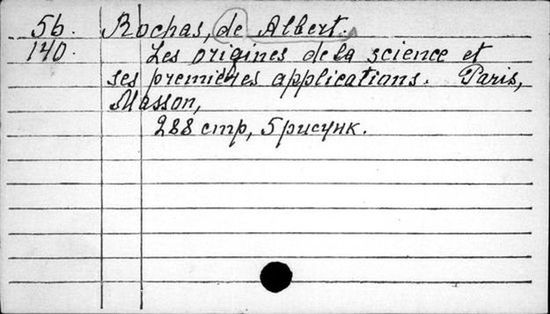 56. Rochas, de Albert.
140. Les origines de la science et
ses premières applications. Paris,
Masson,
288 стр, 5 рисунк.